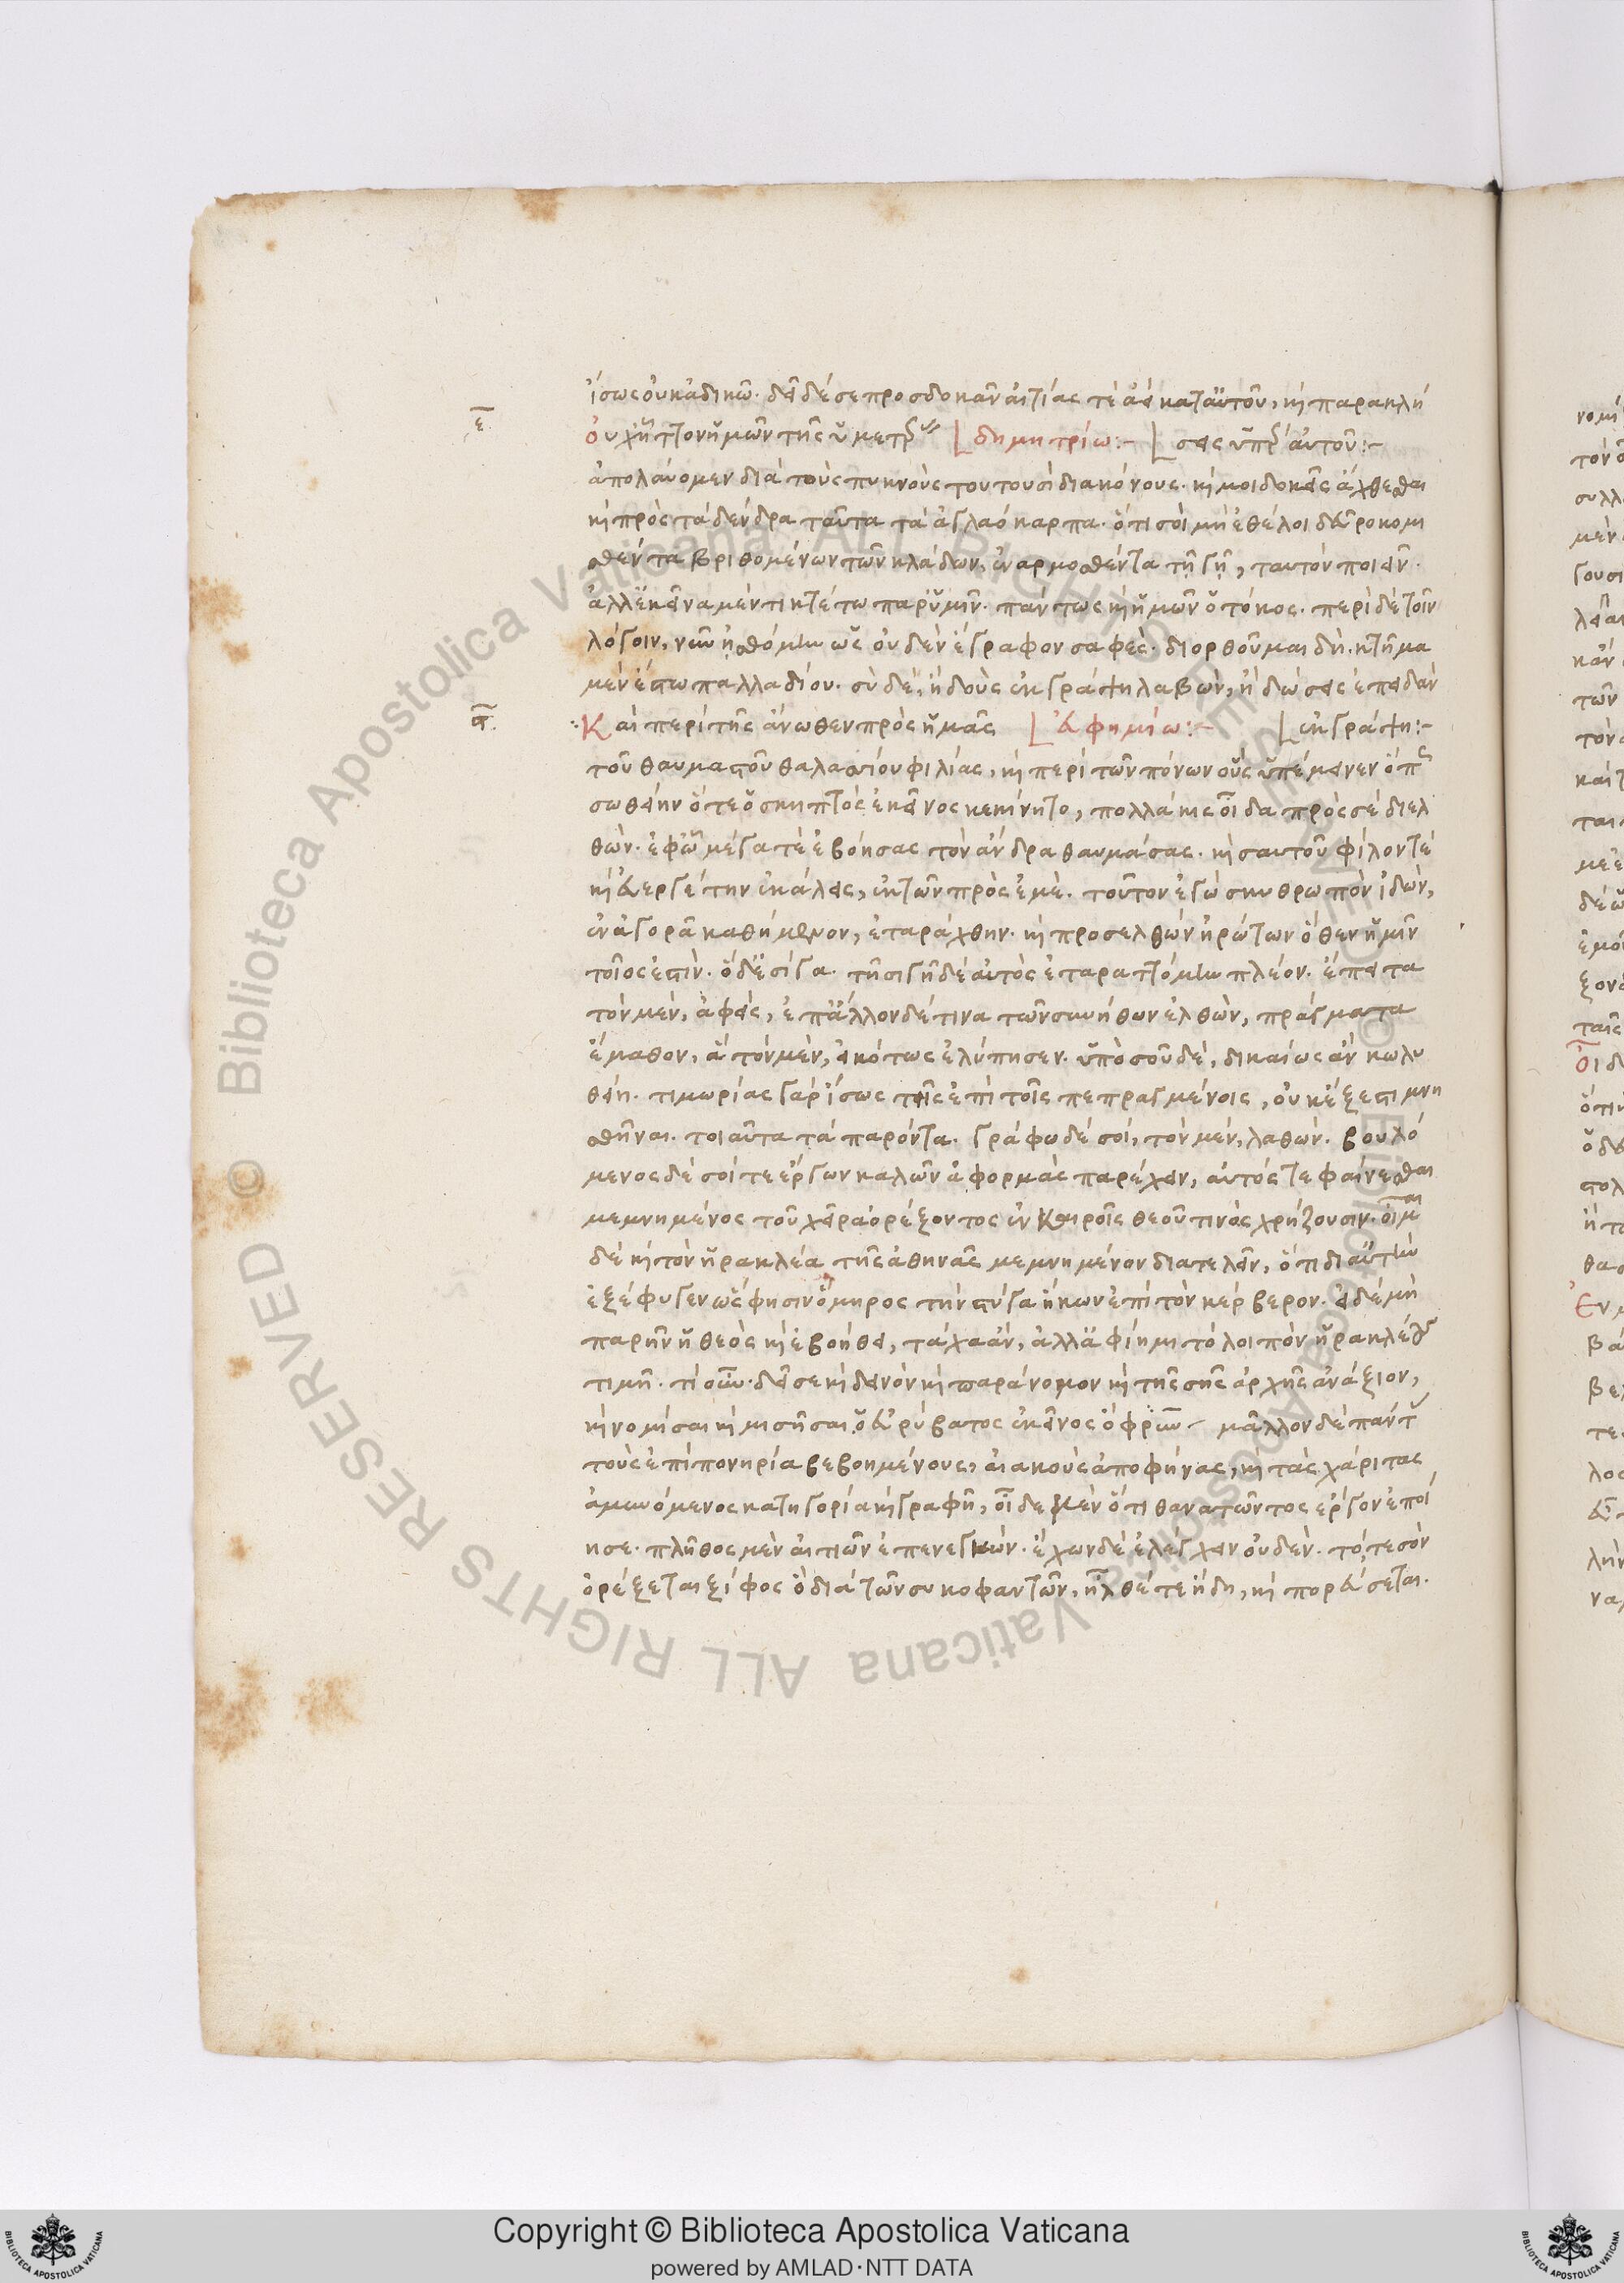 ἴσως οὐκ ἀδικῶ. δεῖ δέ σε προσδοκᾶν αἰτίας τὲ ἀεὶ κατ' αὐτοῦ, καὶ παρακλή
ε
Οὐχ ἧττον ἡμῶν τῆς ὑμετέρας δημητρίω:– σεις ὑπὲρ αὐτοῦ:–
ἀπολαύομεν διὰ τοὺς πυκνοὺς τουτουσὶ διακόνους. καί μοι δοκεῖς ἄχθεσθαι
καὶ πρὸς τὰ δένδρα ταῦτα τὰ ἀγλαόκαρπα. ὅτι σοὶ μὴ ἐθέλοι δεῦρο κομι
σθέντα βριθομένων τῶν κλάδων, ἐναρμοσθέντα τῇ γῇ, ταυτὸν ποιεῖν.
ἀλλ' ἐκεῖνα μὲν τικτέτω παρ' ὑμῖν. πάντως καὶ ἡμῶν ὁ τόκος. περὶ δὲ τοῖν
λόγοιν, νῦν ᾐσθόμην ὡς οὐδὲν ἔγραφον σαφές. διορθοῦμαι δή. κτῆμα
μὲν ἔστω παλλαδίου. σὺ δὲ, ἢ δοὺς ἐκγράψῃ λαβὼν, ἢ δώσεις ἐπειδὰν
ϛ
Καὶ περὶ τῆς ἄνωθεν πρὸς ἡμᾶς εὐφημίω:– ἐκγράψῃ:–
τοῦ θαυμαστοῦ θαλασσίου φιλίας, καὶ περὶ τῶν πόνων οὓς ὑπέμεινεν ὅπως
σωθείην ὅτε ὁ σκηπτὸς ἐκεῖνος κεκίνητο, πολλάκις οἶδα πρὸς σὲ διελ
θών. ἐφ' ᾧ μέγα τὲ ἐβόησας τὸν ἄνδρα θαυμάσας. καὶ σαυτοῦ φίλον τὲ
καὶ εὐεργέτην ἐκάλεις, ἐκ τῶν πρὸς ἐμέ. τοῦτον ἐγὼ σκυθρωπὸν ἰδὼν,
ἐν ἀγορᾷ καθήμενον, ἐταράχθην. καὶ προσελθὼν ἠρώτων ὅθεν ἡμῖν
τοῖος ἐστίν. ὁ δ' ἐσίγα. τῇ σιγῇ δὲ αὐτὸς ἐταραττόμην πλέον. ἔπειτα
τὸν μὲν, ἀφεὶς, ἐπ' ἄλλον δέ τινα τῶν συνήθων ἐλθὼν, πράγματα
ἔμαθον, ἃ τὸν μὲν, εἰκότως ἐλύπησεν. ὑπὸ σοῦ δὲ, δικαίως ἂν κωλυ
θείη. τιμωρίας γὰρ ἴσως τῆς ἐπὶ τοῖς πεπραγμένοις, οὐκ ἔξεστι μνη
σθῆναι. τοιαῦτα τὰ παρόντα. γράφω δέ σοι, τὸν μὲν, λαθών. βουλό
μενος δὲ σοί τε ἔργων καλῶν ἀφορμὰς παρέχειν, αὐτός τε φαίνεσθαι
μεμνημένος τοῦ χεῖρα ὀρέξοντος ἐν καιροῖς θεοῦ τινὸς χρῄζουσιν. οἶμαι
δὲ καὶ τὸν ἡρακλέα τῆς ἀθηνᾶς μεμνημένον διατελεῖν, ὅτι δι' αὐτὴν
ἐξέφυγεν ὥς φησιν ὅμηρος τὴν στύγα ἥκων ἐπὶ τὸν κέρβερον. εἰ δὲ μὴ
παρῆν ἡ θεὸς καὶ ἐβοήθει, τάχα ἂν, ἀλλ' ἀφίημι τὸ λοιπὸν ἡρακλέους
τιμῇ. τί οὖν. δεῖ σε καὶ δεινὸν καὶ παράνομον καὶ τῆς σῆς ἀρχῆς ἀνάξιον,
καὶ νομίσαι καὶ μισῆσαι ὁ εὐρύβατος ἐκεῖνος ὁ φρὺξ – μᾶλλον δὲ πάντας
τοὺς ἐπὶ πονηρία βεβοημένους, αἰακοὺς ἀποφήνας, καὶ τὰς χάριτας
ἀμειβόμενος κατηγορία καὶ γραφῇ, οἶδε μὲν ὅτι θανατῶντος ἔργον ἐποί
ησε. πλῆθος μὲν αἰτιῶν ἐπενεγκών. ἔχων δὲ ἐλέγχειν οὐδέν. τό τε σὸν
ὀρέξεται ξίφος ὃ διὰ τῶν συκοφαντῶν, ἦλθέ τε ἤδη, καὶ πορεύσεται.